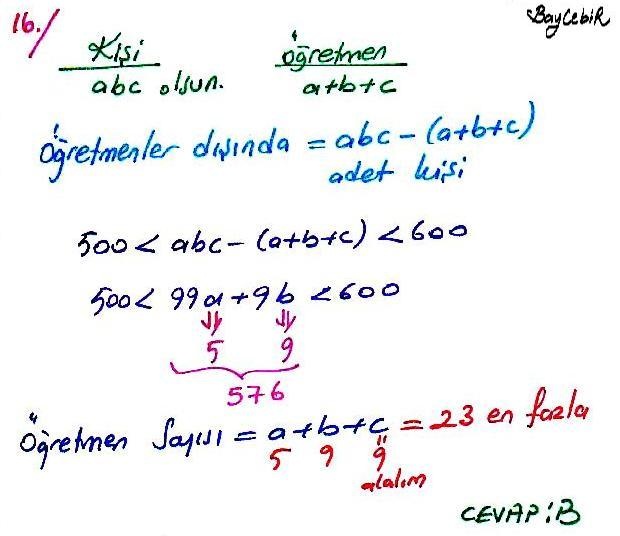 16./
BayCebiR
Kişi öğretmen
abc olsun. a+b+c
Öğretmenler dışında = abc - (a+b+c)
adet kişi
500 < abc - (a+b+c) < 600
500 < 99a + 9b < 600
5 9
576
Öğretmen Sayısı = a+b+c = 23 en fazla
5 9 9
alalım
CEVAP: B